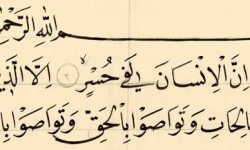 ـمِ اللهِ الرَّحْمٰ
اِنَّ الْاِنْسَانَ لَفى خُسْرٍ ٢ اِلَّا الَّذي
ـالِحَاتِ وَتَوَاصَوْا بِالْحَقِّ وَتَوَاصَوْا بِا